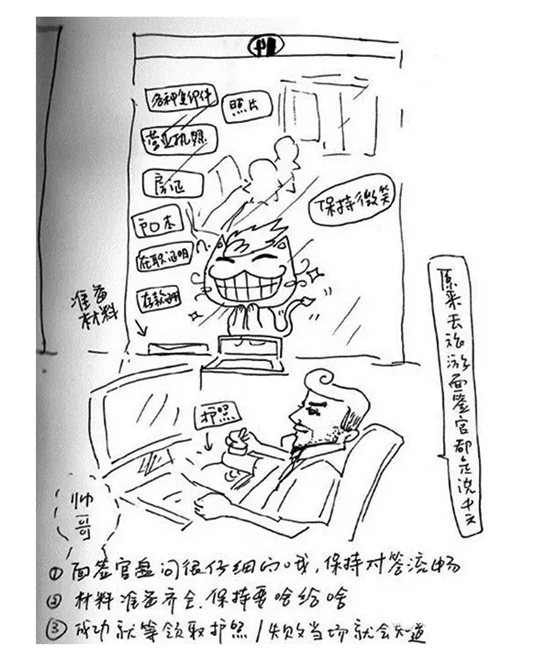 各种复印件
照片
营业执照
房证
户口本
在职证明
存款证明
保持微笑
准备
材料
护照
帅哥
原来去旅游面签官都是说中文
① 面签官盘问很仔细的哦,保持对答流畅
② 材料准备齐全.保持要啥给啥
③ 成功就等领取护照/失败当场就会知道